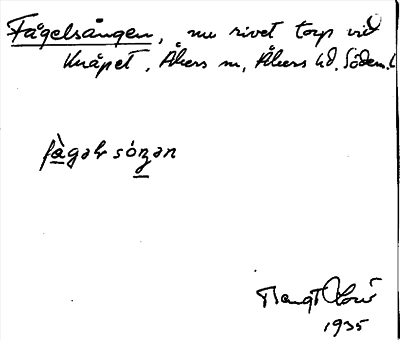 Fågelsången, nu rivet torp vid
Knåpet, Åkers sn, Åkers hd. Södem.l
fàgəlsóŋən
Bengt
1935